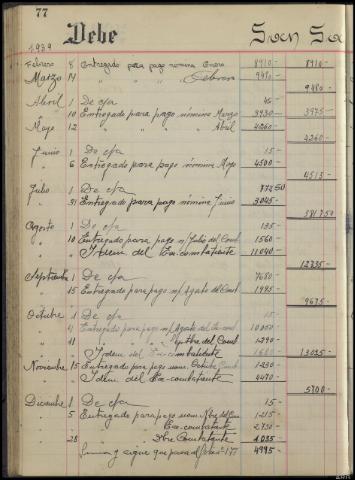 77
1939
Debe
San Sa
Febrero 8 Entregado para pago nómina Enero 8910- 8910-
Marzo 14 " " " " Febrero 9480-
9480-
Abril 1 De c/a 45-
" 10 Entregado para pago nómina Marzo 3930- 3975-
Mayo 12 " " " " Abril 4260-
4260-
Junio 1 De c/a 15-
" 6 Entregado para pago nómina Mayo 4500-
4515-
Julio 1 De c/a 50
" 31 Entregado para pago nómina Junio 3045-
Agosto 1 De c/a 135-
" 10 Entregado para pago n/ Julio del Comb 1560-
" " Idem del Ex-combatiente 11040-
12735-
Septiembre 1 De c/a 7680-
" 15 Entregado para pago n/ Agosto del Comb 1995-
9675-
Octubre 1 De c/a 15-
" 4 Entregado para pago n/ Agosto del Ex-comb 10050
" 11 " " " " Septbre del Comb 1290-
" " Idem del Ex-combatiente 1680- 13035-
Noviembre 15 Entregado para pago nom Octubre Comb 1230-
" " Idem del Ex-combatiente 4470-
5700-
Diciembre 1 De c/a 15-
" 5 Entregado para pago nom Nbre del Com 1215-
Ex-combatiente 2730-
" 28 Dbre Combatiente 1035-
Suma y sigue que pasa al folio nº 177 4995-